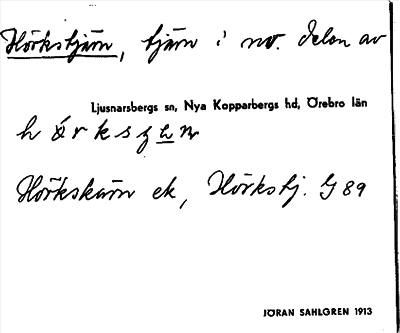 Hörkstjärn, tjärn i nv. delen av
Ljusnarsbergs sn, Nya Kopparbergs hd, Örebro län
Hörkskärn ek, Hörkstj. G 89
JÖRAN SAHLGREN 1913